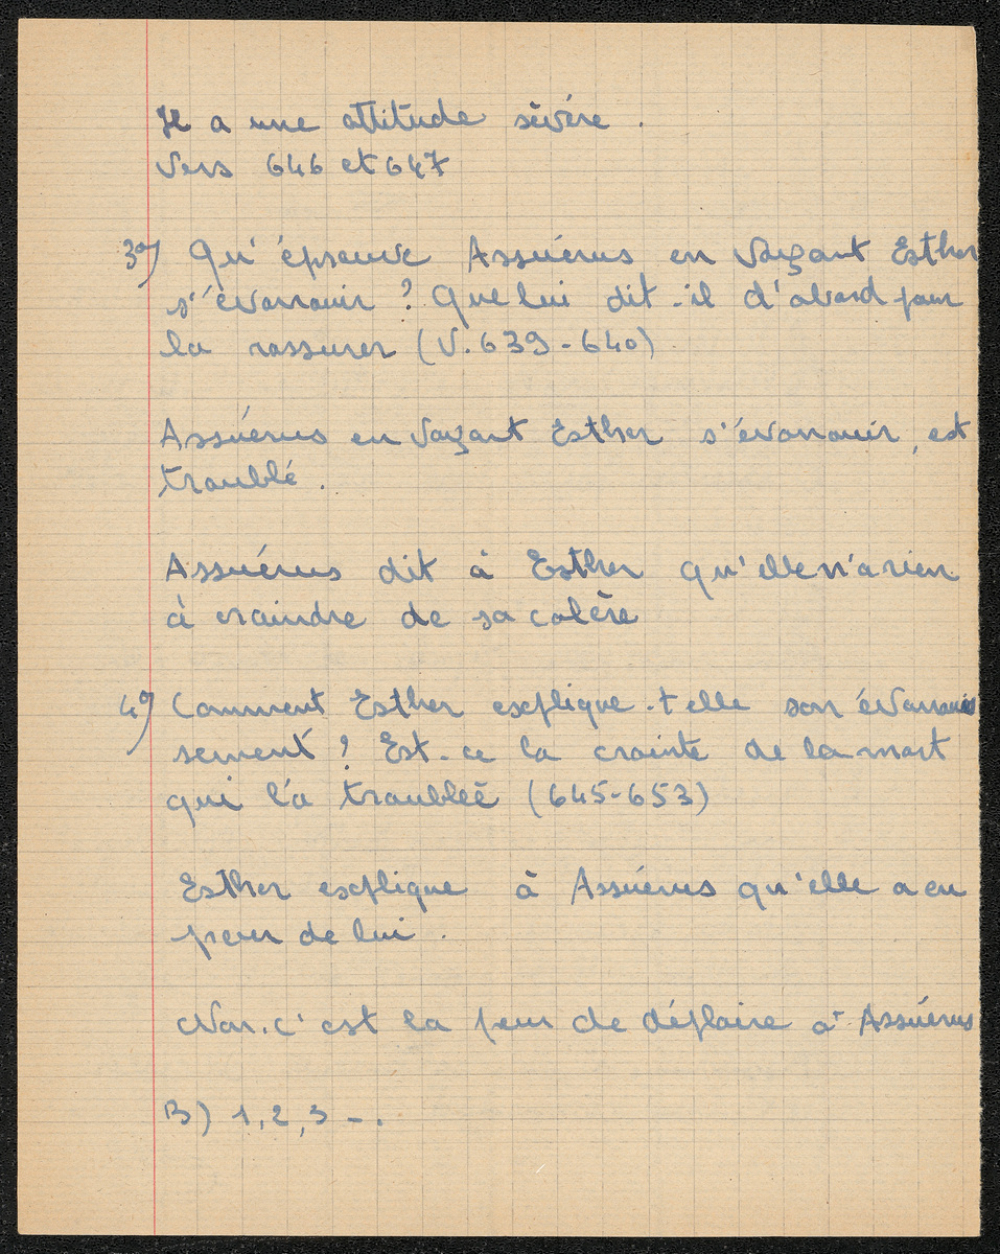 Il a une attitude sévère .
Vers 646 et 647
3°) Qu'éprouve Assuérus en voyant Esther
s'évanouir ? Que lui dit-il d'abord pour
la rassurer (V. 639-640)
Assuérus en voyant Esther s'évanouir, est
troublé .
Assuérus dit à Esther qu'elle n'a rien
à craindre de sa colère
4°) Comment Esther explique-t elle son évanouis
sement ? Est-ce la crainte de la mort
qui l'a troublée (645-653)
Esther explique à Assuérus qu'elle a eu
peur de lui .
Non. c'est la peur de déplaire à Assuérus
B) 1, 2, 3 - .